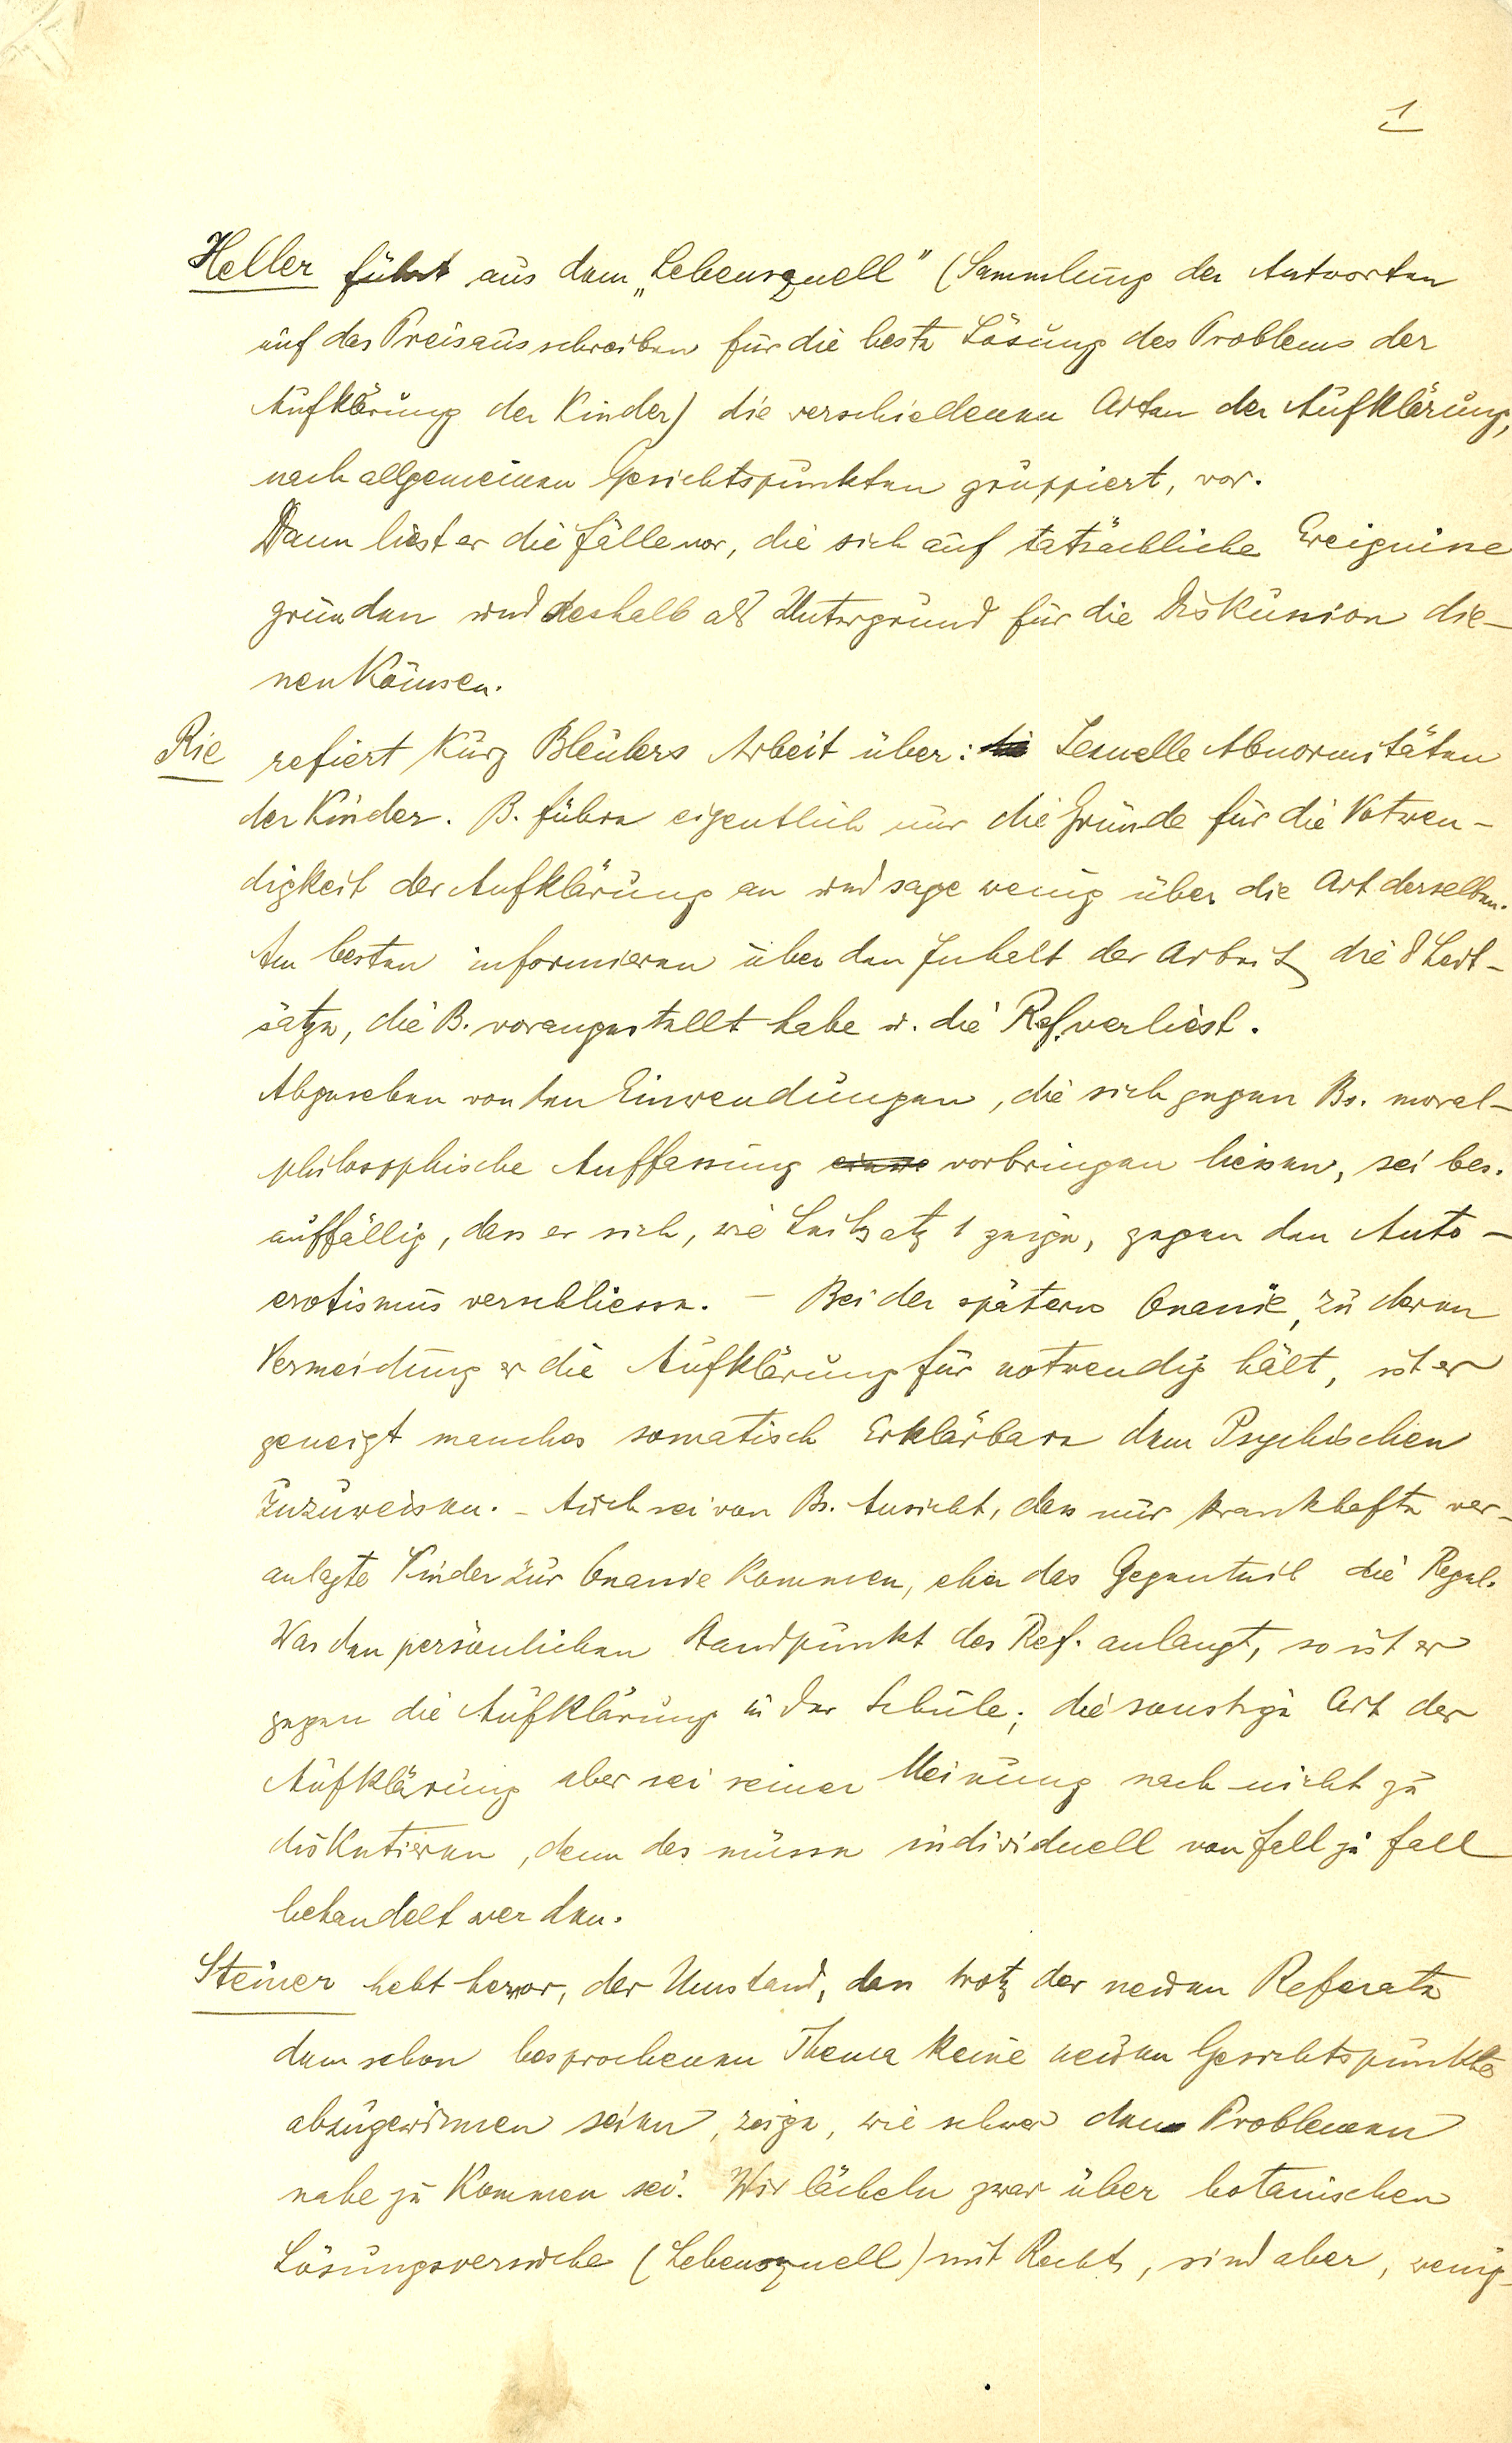 1
Heller führt aus dem „Lebensquell" (Sammlung der Antworten
auf das Preisausschreiben für die beste Lösung des Problems der
Aufklärung der Kinder) die verschiedenen Arten der Aufklärung,
nach allgemeinen Gesichtspunkten gruppiert, vor.
Dann liest er die Fälle vor, die sich auf tatsächliche Ereignisse
gründen und deshalb als Untergrund für die Diskussion die-
nen können.
Rie refiert kurz Bleulers Arbeit über: Sexuelle Abnormitäten
der Kinder. B. führe eigentlich nur die Gründe für die Notwen-
digkeit der Aufklärung an und sage wenig über die Art derselben.
Am besten informieren über den Inhalt der Arbeit die 8 Leit-
sätze, die B. vorangestellt habe u. die Ref. verliest.
Abgesehen von den Einwendungen, die sich gegen Bs. moral-
philosophische Auffassung vorbringen liessen, sei bes.
auffällig, dass er sich, wie Leitsatz 1 zeige, gegen den Auto-
erotismus verschliesse. – Bei der spätern Onanie, zu deren
Vermeidung er die Aufklärung für notwendig hält, ist er
geneigt manches somatisch Erklärbare dem Psychischen
zuzuweisen. – Auch sei von Bs. Ansicht, dass nur krankhafte ver-
anlagte Kinder zur Onanie kommen, eher das Gegenteil die Regel.
Was den persönlichen Standpunkt des Ref. anlangt, so ist er
gegen die Aufklärung in der Schule; die sonstige Art der
Aufklärung aber sei seiner Meinung nach nicht zu
diskutieren, denn das müsse individuell von Fall zu Fall
behandelt werden.
Steiner hebt hervor, der Umstand, dass trotz der neuen Referate
dem schon besprochenen Thema keine neuen Gesichtspunkte
abzugewinnen seien, zeige, wie schwer dem Problemen
nahe zu kommen sei. Wir lächeln zwar über botanischen
Lösungsversuche (Lebensquell) mit Recht, sind aber, wenig-